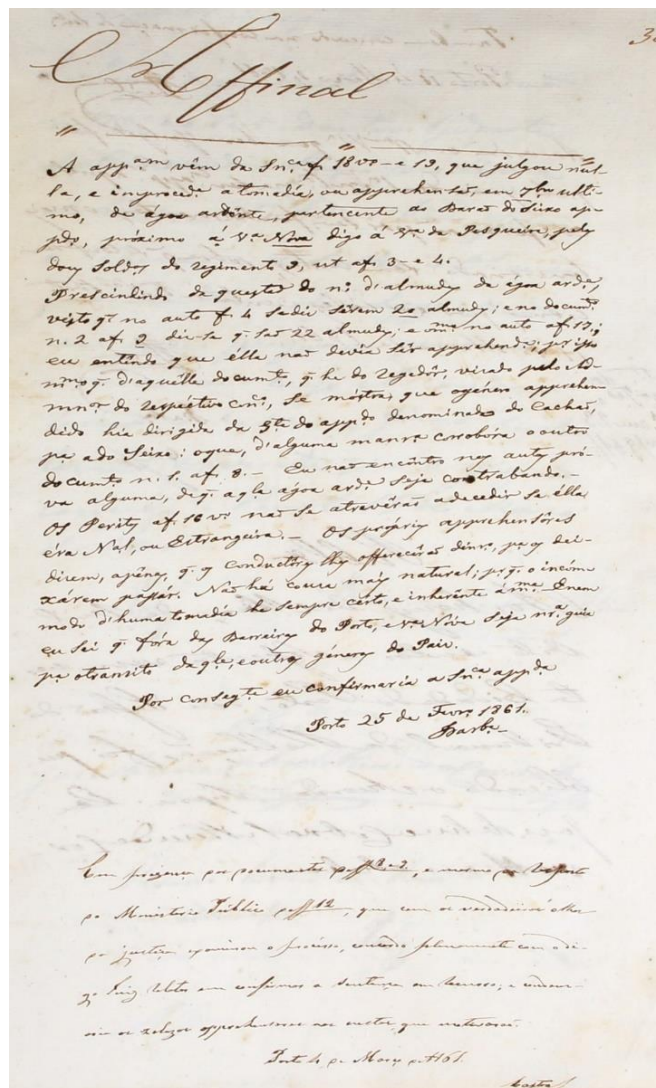 Affinal
A app.am vêm da Sn.ca f. 18 v.o - e 19, que julgou nul-
la, e improced.e atomedia, ou apprehensaõ, em 7br.o ulti-
mo, de ágoa ardente, pertencente ao Baraõ do Seixo ap-
pdo, próximo á V.a Nova digo á V.a da Pesqueira, pelos
dous Sold.os do regimento 9, ut af. 3 - e 4.
Prescindindo da questaõ do n.o d'almudes da ágoa ard.e,
visto q. no auto f. 4 se diz sêrem 20 almudes; e no docum.to
n. 2 af. 9 diz-se q. saõ 22 almudes; e o m.mo no auto af. 17;
eu entendo que élla naõ devia sêr apprehend.a; pr. isso
m.mo q. d'aquélle docum.to, q. he do regedôr, virado pelo Ad-
mn.or do respéctivo con.o, se móstra, que o género apprehen-
dido hia dirigida da q.ta do app.do denominada do Cachaõ,
p.a a do Seixo: o que, d'alguma man.ra corrobóra o outro
documto n. 1. af. 8. - Eu naõ encontro nos autos pró-
va alguma, de q. a q.la ágoa ard.e seja contrabando. -
Os Peritos af. 16 v.o naõ se atrevêraõ a decedir se élla
éra Na.l, ou Estrangeira. - Os próprios apprehensôres
dizem, apênas, q. os conductôres lhes offerecêraõ dinr.o, pa. os dei-
xárem passár. Naõ há cousa mais natural; pr. q. o incóm-
modo d'huma tomedia he sempre certo, e inherente á m.ma. E nem
eu sei q. fóra das Barreiras do Porto, e V.a Nova seja nr.a guia
pa. o transito da q.la, e outros géneros do Paiz.
Por conseg.te eu confirmaria a Sn.ca app.da
Porto 25 de Fevr.o 1861.
Barb.a
Em presença dos documentos de ff 8 e 9, e mesmo da resposta
do Ministerio Público de ff 12, que com os verdadeiros olhos
da justiça examinou o processo, concordo plenamente com o di-
gno Juiz
em confirmar a sentença em recurso, e condem-
os zelozos apprehensores nas custas
Porto 4 de Março de 1861.
Castro